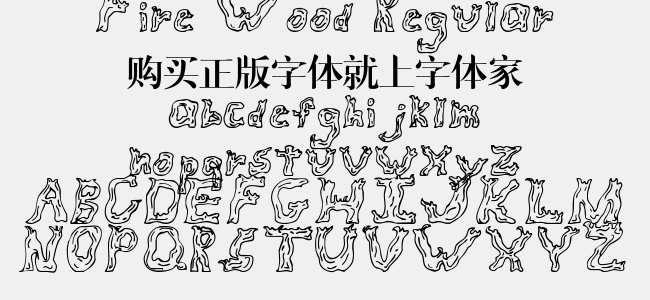 Fire Wood Regular
购买正版字体就上字体家
abcdefghijklm
nopqrstuvwxyz
ABCDEFGHIJKLM
NOPQRSTUVWXYZ